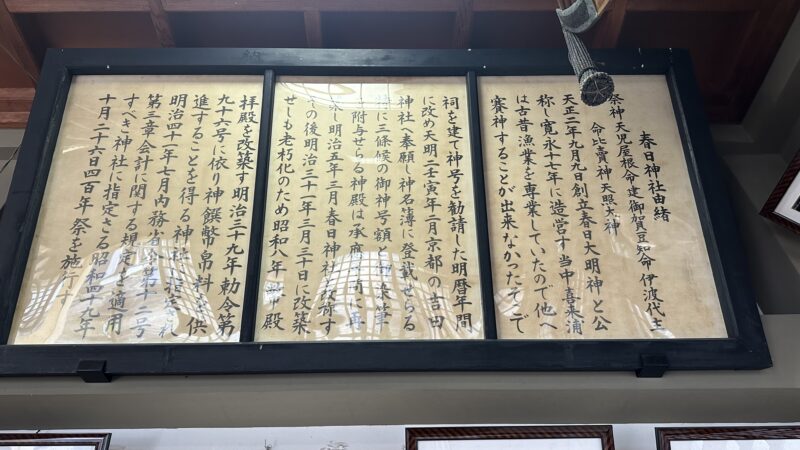 春日神社由緒
祭神 天児屋根命 建御賀豆知命 伊波代主
命 比賣神 天照大神
天正二年九月九日創立春日大明神と公
称し寛永十七年に造営す当中喜来浦
は古昔漁業を専業していたので他へ
賽神することが出来なかったそこで
祠を建て神号を勧請した明暦年間
に改め天明二壬寅年二月京都の吉田
神社へ奉願し神名簿に登載せらる
特に三條候の御神号額と
附与せらる神殿は承應 再
し明治五年三月春日神社 改称す
その後明治三十一年三月三十日に改築
せしも老朽化のため昭和八年 殿
拝殿を改築す明治三十九年勅令第
九十六号に依り神饌幣帛料 供
進することを得る神社 指定され
明治四十一年七月内務省令第十二号
第三章会計に関する規定を適用
すべき神社に指定さる昭和四十九年
十月二十六日四百年祭を施行す